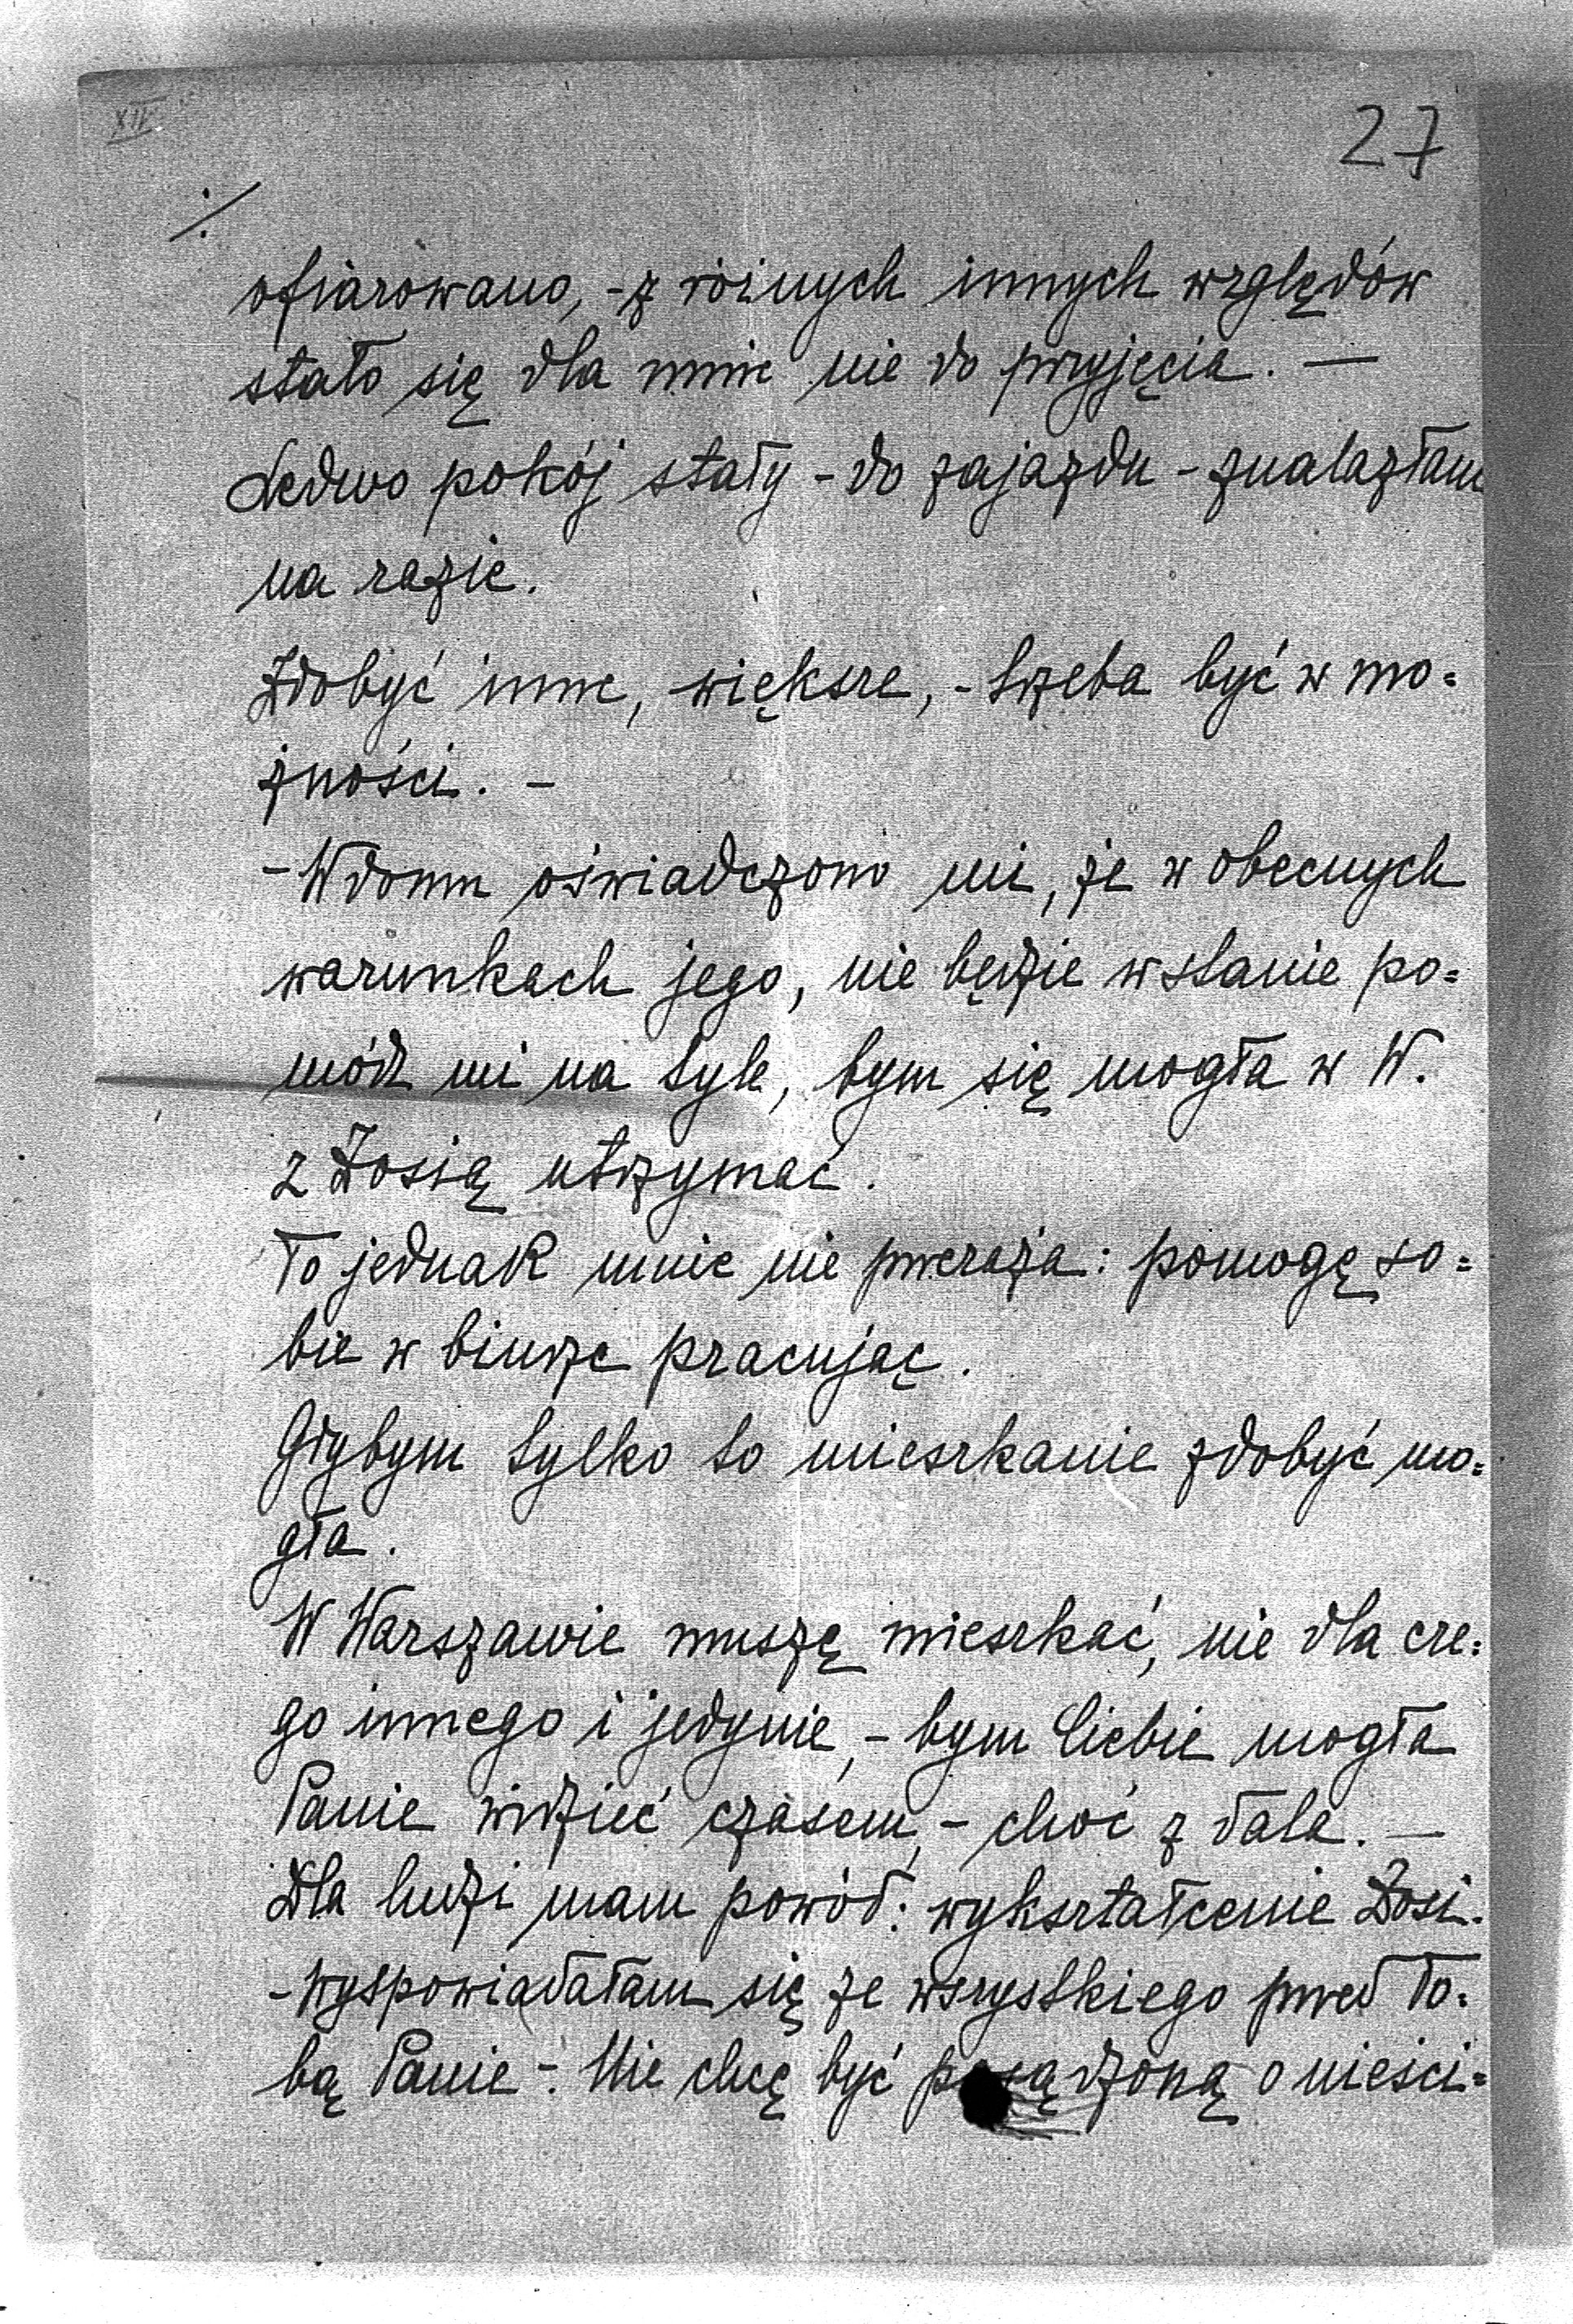 XIV
27
./.
ofiarowano, - z różnych innych względów
stało się dla mnie nie do przyjęcia. —
Ledwo pokój stały - do zajazdu - znalazłam
na razie.
Zdobyć inne, większe, - trzeba być w mo=
żności. -
- W domu oświadczono mi, że w obecnych
warunkach jego, nie będzie w stanie po=
módz mi na tyle, bym się mogła w W.
z Zosią utrzymać.
To jednak mnie nie przeraża: pomogę so=
bie w biurze pracując.
Gdybym tylko to mieszkanie zdobyć mo=
gła.
W Warszawie muszę mieszkać, nie dla cze=
go innego i jedynie, - bym Ciebie mogła
Panie widzieć czasem, - choć z dala. —
Dla ludzi mam powód: wykształcenie Zosi.
- Wyspowiadałam się ze wszystkiego przed To=
bą Panie -. Nie chcę być posądzoną o nieści=